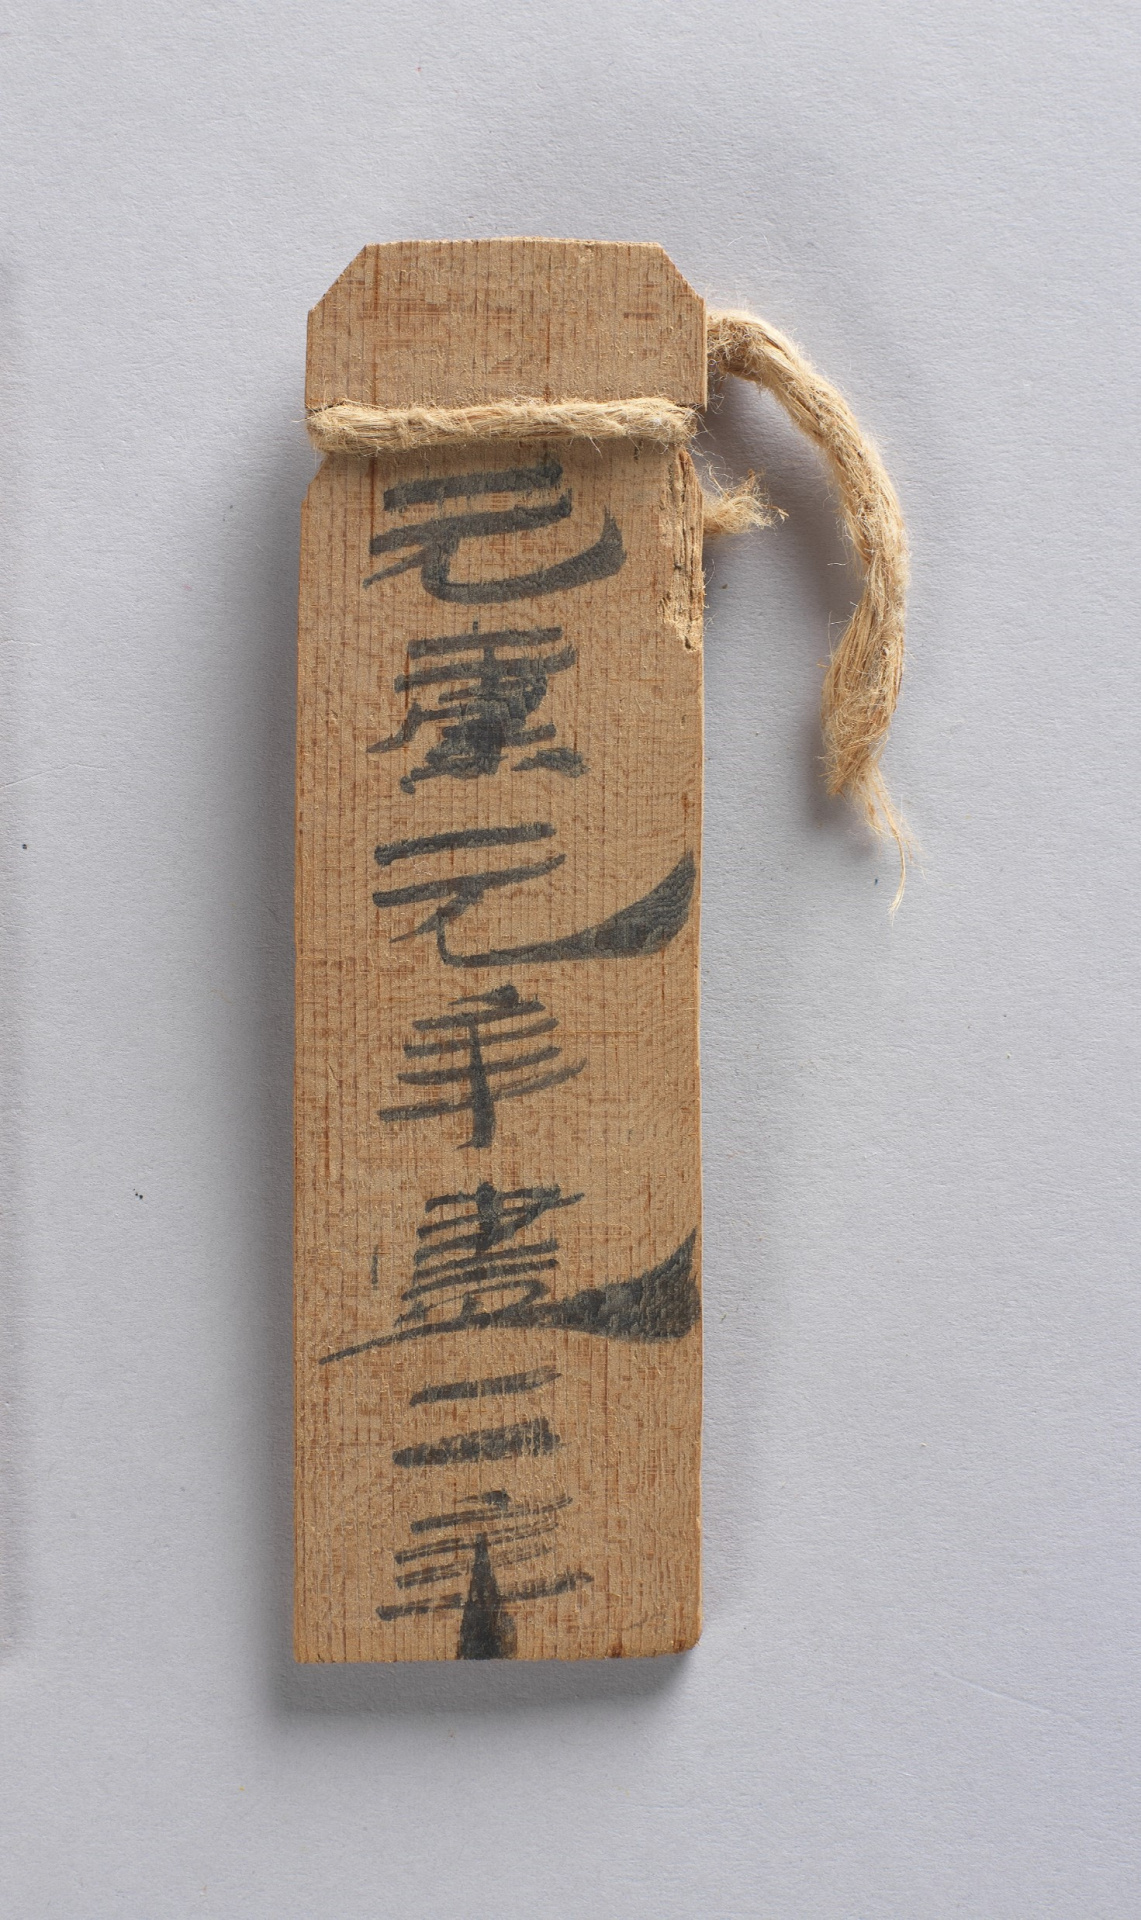 元康元年盡二年